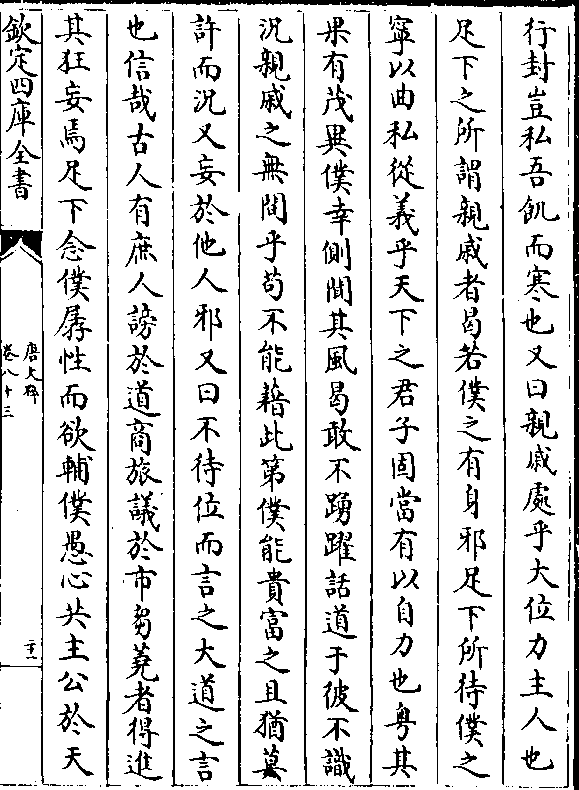 行封豈私吾飢而寒也又曰親戚處乎大位力主人也
足下之所謂親戚者曷若僕之有身邪足下所待僕之
寧以曲私從義乎天下之君子固當有以自力也粤其
果有茂異僕幸側聞其風曷敢不踴躍話道于彼不識
況親戚之無間乎苟不能藉此第僕能貴富之且猶莫
許而況又妄於他人邪又曰不待位而言之大道之言
也信哉古人有庶人謗於道商旅議於市芻蕘者得進
其狂妄焉足下念僕孱性而欲輔僕愚心共主公於天
欽定四庫全書
唐文粹
卷八十三
二十一